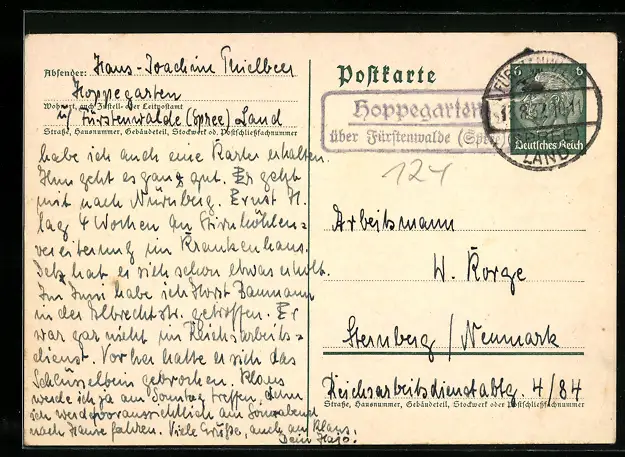 Absender: Hans-Joachim Thielbeer
Hoppegarten
Wohnort, auch Zustell- oder Leitpostamt
ü/ Fürstenwalde (Spree) Land
Straße, Hausnummer, Gebäudeteil, Stockwerk od. Postschließfachnummer
habe ich auch eine Karte erhalten.
Ihm geht es ganz gut. Er geht
mit nach Nürnberg. Ernst H.
lag 4 Wochen an Stirnhöhlen=
vereiterung im Krankenhaus.
Jetzt hat er sich schon etwas erholt.
Im Juni habe ich Horst Baumann
in der Albrechtstr. getroffen. Er
war gar nicht im Reichsarbeits=
dienst. Vorher hatte er sich das
Schlüsselbein gebrochen. Klaus
werde ich ja am Sonntag treffen, denn
ich werde voraussichtlich am Sonnabend
nach Hause fahren. Viele Grüße, auch an Klaus,
Dein Hajo.
Postkarte
Hoppegarten
über Fürstenwalde (Spree)
124
6 6
Deutsches Reich
(SPREE)
LAND
Arbeitsmann
W. Korge
Sternberg / Neumark
Reichsarbeitsdienstabtlg. 4/84
Straße, Hausnummer, Gebäudeteil, Stockwerk oder Postschließfachnummer